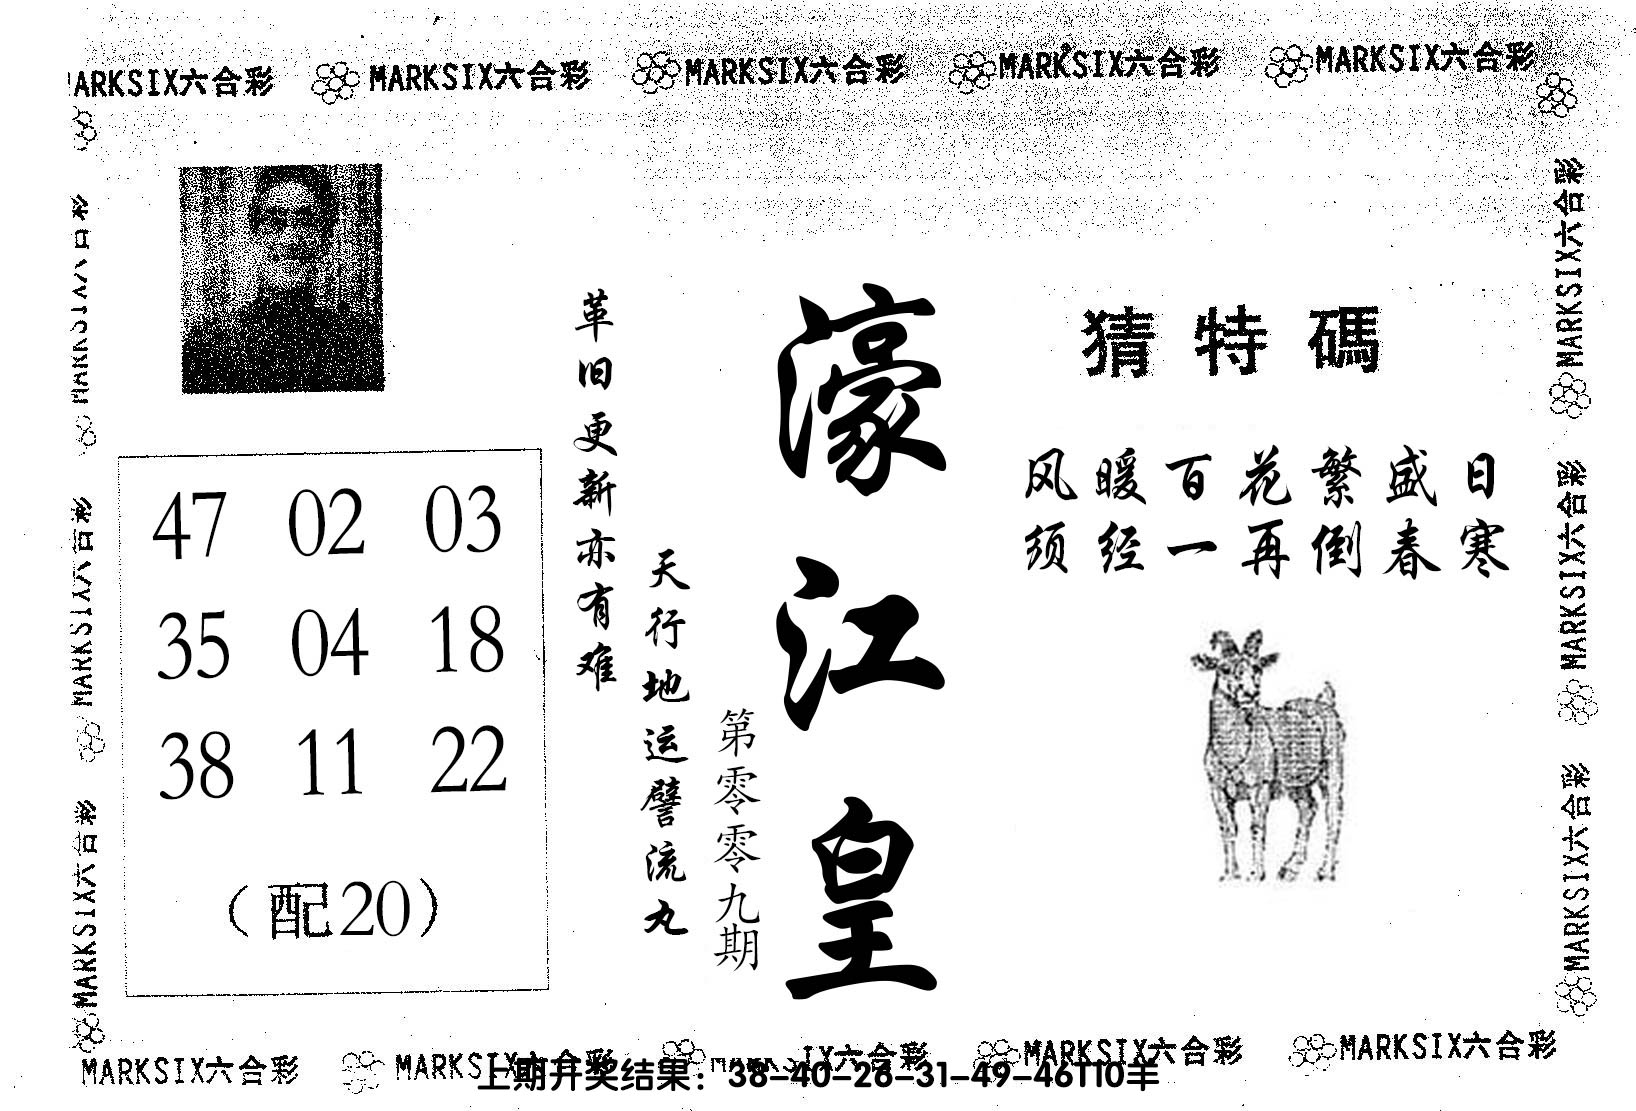 MARKSIX六合彩 MARKSIX六合彩 MARKSIX六合彩 MARKSIX六合彩 MARKSIX六合彩
猜特碼
风暖百花繁盛日
须经一再倒春寒
濠江皇
第零零九期
天行地运譬流丸
革旧更新亦有难
47 02 03
35 04 18
38 11 22
（配20）
MARKSIX六合彩
MARKSIX六合彩
MARKSIX六合彩
MARKSIX六合彩
MARKSIX六合彩
MARKSIX六合彩
MARKSIX六合彩 MARKSIX六合彩 IX六合彩 MARKSIX六合彩 MARKSIX六合彩
上期开奖结果：38-40-26-31-49-46T10羊